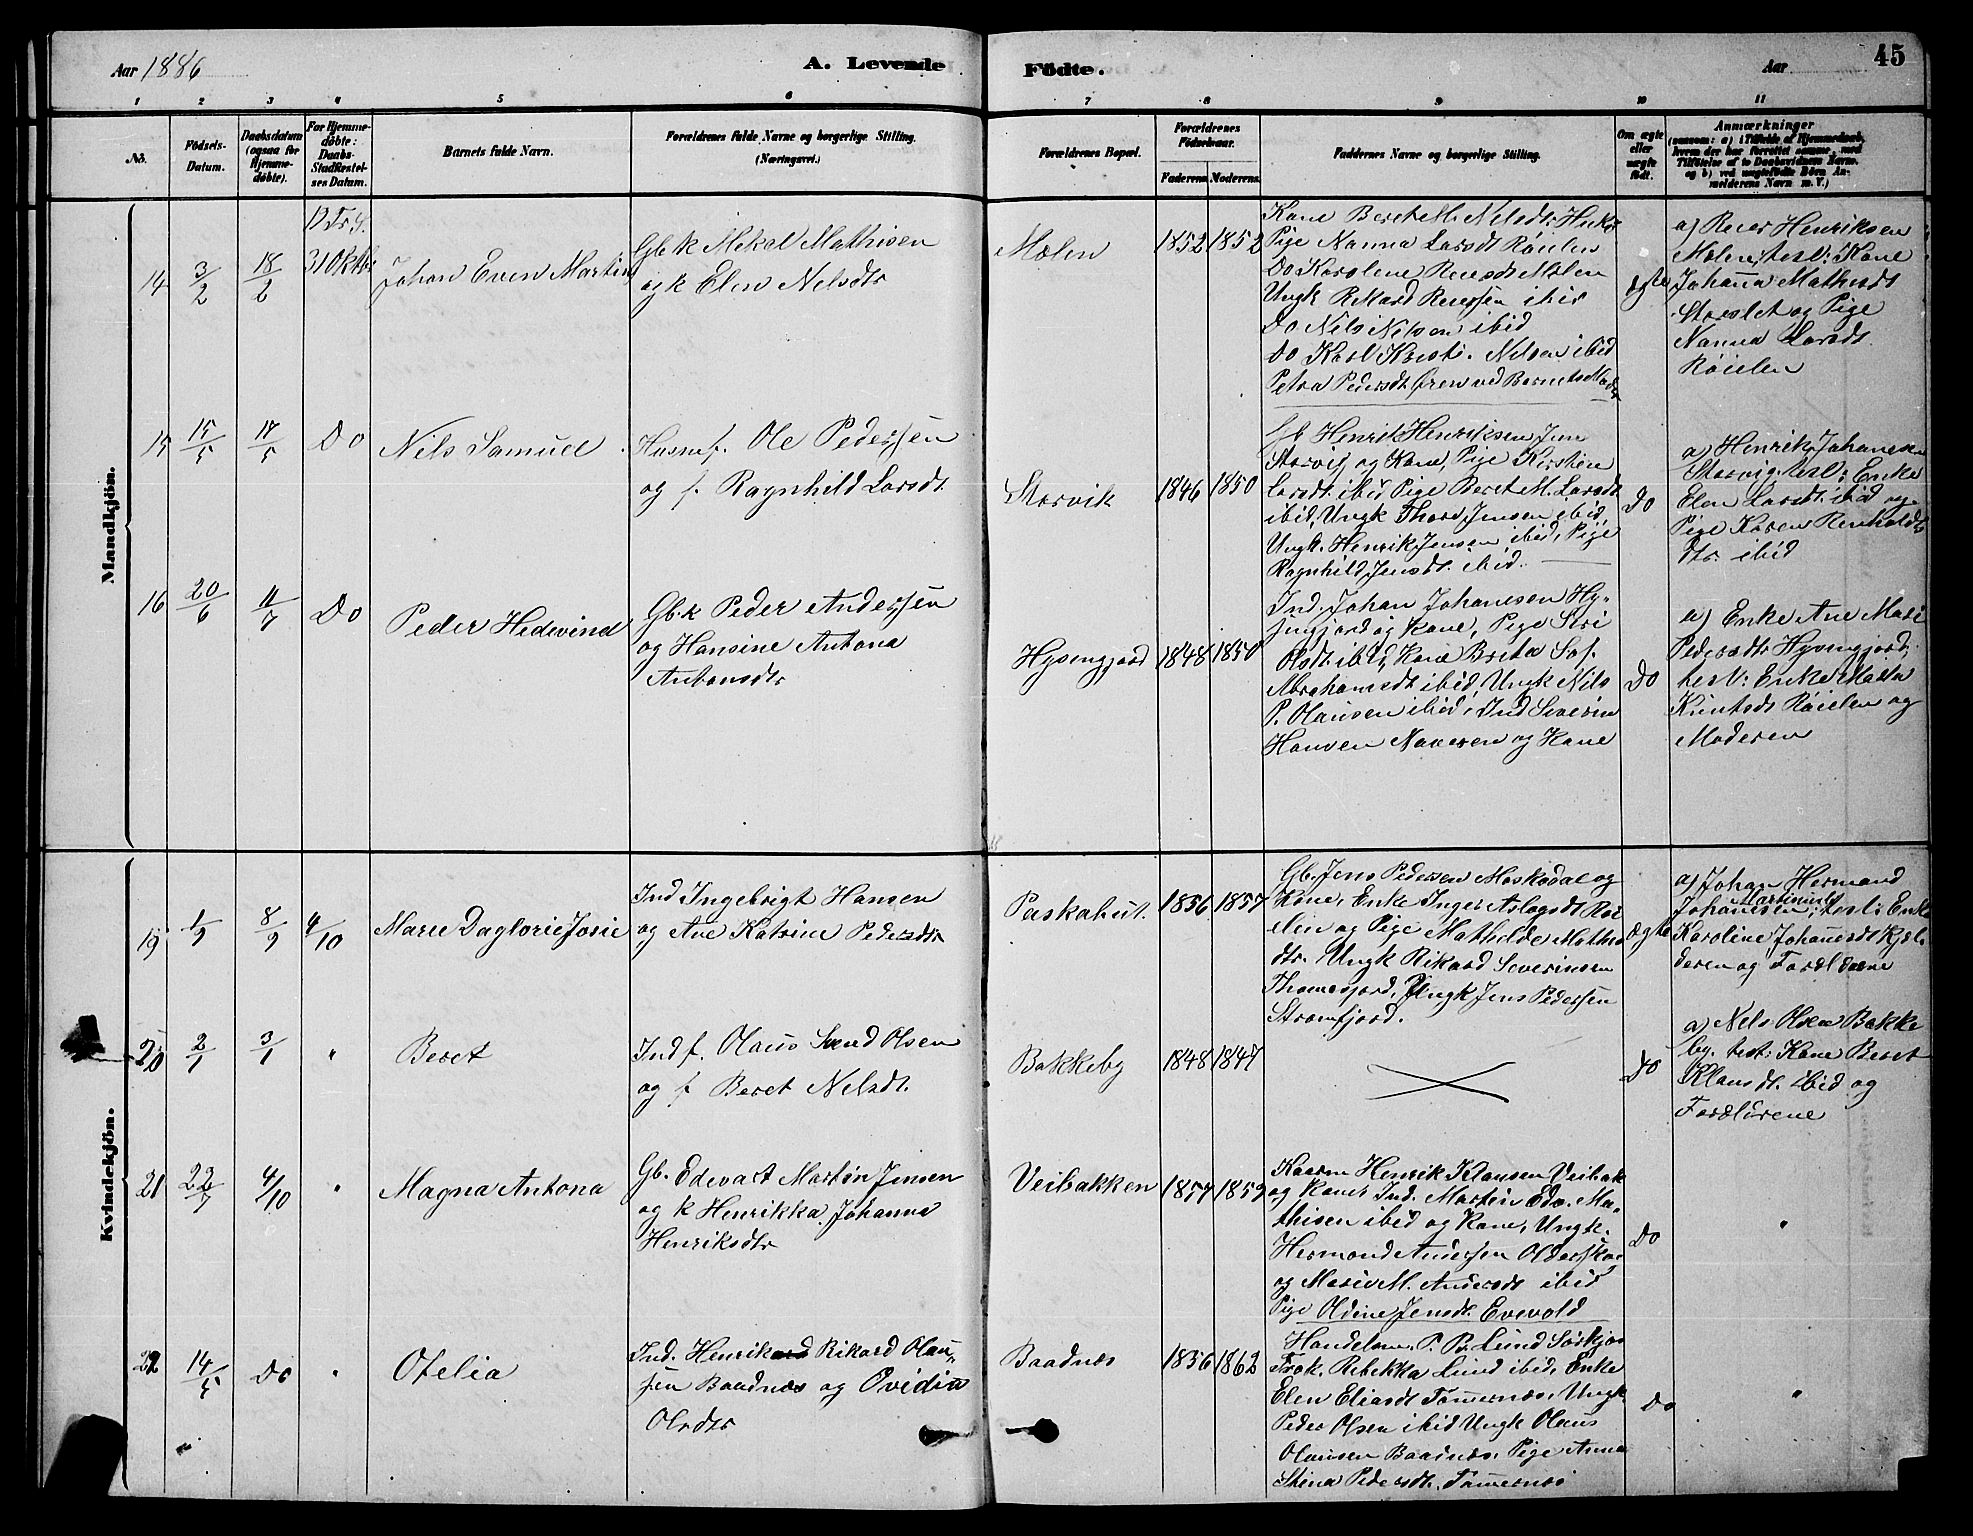 Aar 1886
A. Levende
Födte.
Aar
45
1 2 3 4 5 6 7 8 9 10 11
No.
Födsels-
Datum.
Daabsdatum
(ogsaa for
Hjemme-
döbte).
For Hjemme-
döbte:
Daabs-
Stadfæstel-
ses Datum.
Barnets fulde Navn.
Forældrenes fulde Navne og borgerlige Stilling.
(Næringsvei.)
Forældrenes Bopæl.
Forældrenes
Födselsaar.
Faderens. Moderens.
Faddernes Navne og borgerlige Stilling.
Om ægte
eller
uægte
födt.
Anmærkninger
(saasom: a) i Tilfælde af Hjemmedaab,
hvem der har forrettet samme, med
Tilföielse af to Daabsvidners Navne,
og b) ved uægtefödte Börn An-
melderens Navn m. V.)
Mandkjön.
14
3/2
18/2
31 Oktbr
Johan Even Martin
Gbk Mikal Mathisen
og k Elen Nelsdtr
Molen
1852
1852
Kane Beret M. Nelsdtr
Pige Nanna Larsdt Röielen
Do Karolene Reiersdt Molen
Ungk Rikard Reiersen ibid
Do Nils Nelsen ibid
Do Karl Kristi. Nelsen ibid
Petra Pedersdt. Ören ved Barnets Moder
ægte
a) Reier Henriksen
Molen, test: Kane
Johanna Mathisdt
Storslet og Pige
Nanna Larsdt.
Röielen
15
15/5
17/5
Do
Nils Samuel
Husmf. Ole Pederssen
og f. Ragnhild Larsdt.
Storvik
1846
1850
Gb Henrik Henriksen Jun
Storvig og Kane, Pige Kirstien
Larsdt. ibid Pige Beret M. Larsdt
ibid, Ungk Thore Jensen ibid,
Ungk. Henrik Jensen ibid, Pige
Ragnhild Jensdt. ibid.
Do
a) Henrik Johanesen
Storvig, test: Enke
Elen Larsdt. ibid og
Pige Karen Renholdts
dtr. ibid
16
20/6
11/7
Do
Peder Hedevind
Gbk Peder Anderssen
og Hansine Antona
Antonsdtr
Hysengjord
1848
1850
Ind. Johan Johanesen Hy-
sengjord og Kane, Pige Siri
Olsdt. ibid, Kane Brita Sof.
Abrahamsdt ibid, Ungk Nils
P. Olausen ibid, Ind Severin
Hansen Naveren og Kane
Do
a) Enke Ane Mari
Pedersdtr Hysengjord,
test: Enke Marta
Knutsdt Röielen og
Moderen
Kvindekjön.
19
1/9
8/9
4/10
Marie Daglorie Josie
Ind Ingebrigt Hansen
og Ane Katrine Pedersdtr
Paskahut.
1856
1857
Gb. Jens Pedersen Moskodal og
Kane, Enke Inger Aslagsdt Röi-
elen og Pige Mathilde Mathis
dtr. Ungk Rikard Severinsen
Thomasjord, Ungk Jens Pederssen
Stromfjord.
ægte
a) Johan Hermand
Martinius
Johansen, test: Enke
Karoline Johanesdt Kjel-
deren og Forældrene
20
2/1
3/1
"
Beret
Ind f. Olaus Svend Olsen
og f Beret Nelsdt.
Bakkeby
1848
1847
Do
a) Nels Olsen Bakke
by. test: Kane Beret
Klausdt. ibid og
Forældrene
21
22/7
4/10
"
Magna Antona
Gb. Edevart Martin Jensen
og k Henrikka Johanna
Henriksdtr
Veibakken
1857
1859
Henrik Klausen Veibak
og Kane Ind. Martin Edv. Ma-
thisen ibid og Kane, Ungk.
Hermand Anderssen Olderskog
og Marie M. Andersdt ibid
Pige Oldine Jensdt. Evevold
Do
"
22
14/5
Do
"
Otelia
Ind. Henrik Rikard Olau-
sen Baadnæs og Ovidia
Olsdtr
Baadnæs
1856
1862
Handelsm. P. B. Lund Sörkjos
Frök. Rebekka Lund ibid, Enke
Elen Eliasdt Tömernæs, Ungk
Peder Olsen ibid Ungk Olaus
Olausen Baadnæs, Pige Anna
Stina Pedersdt. Tömernæs
Do
"